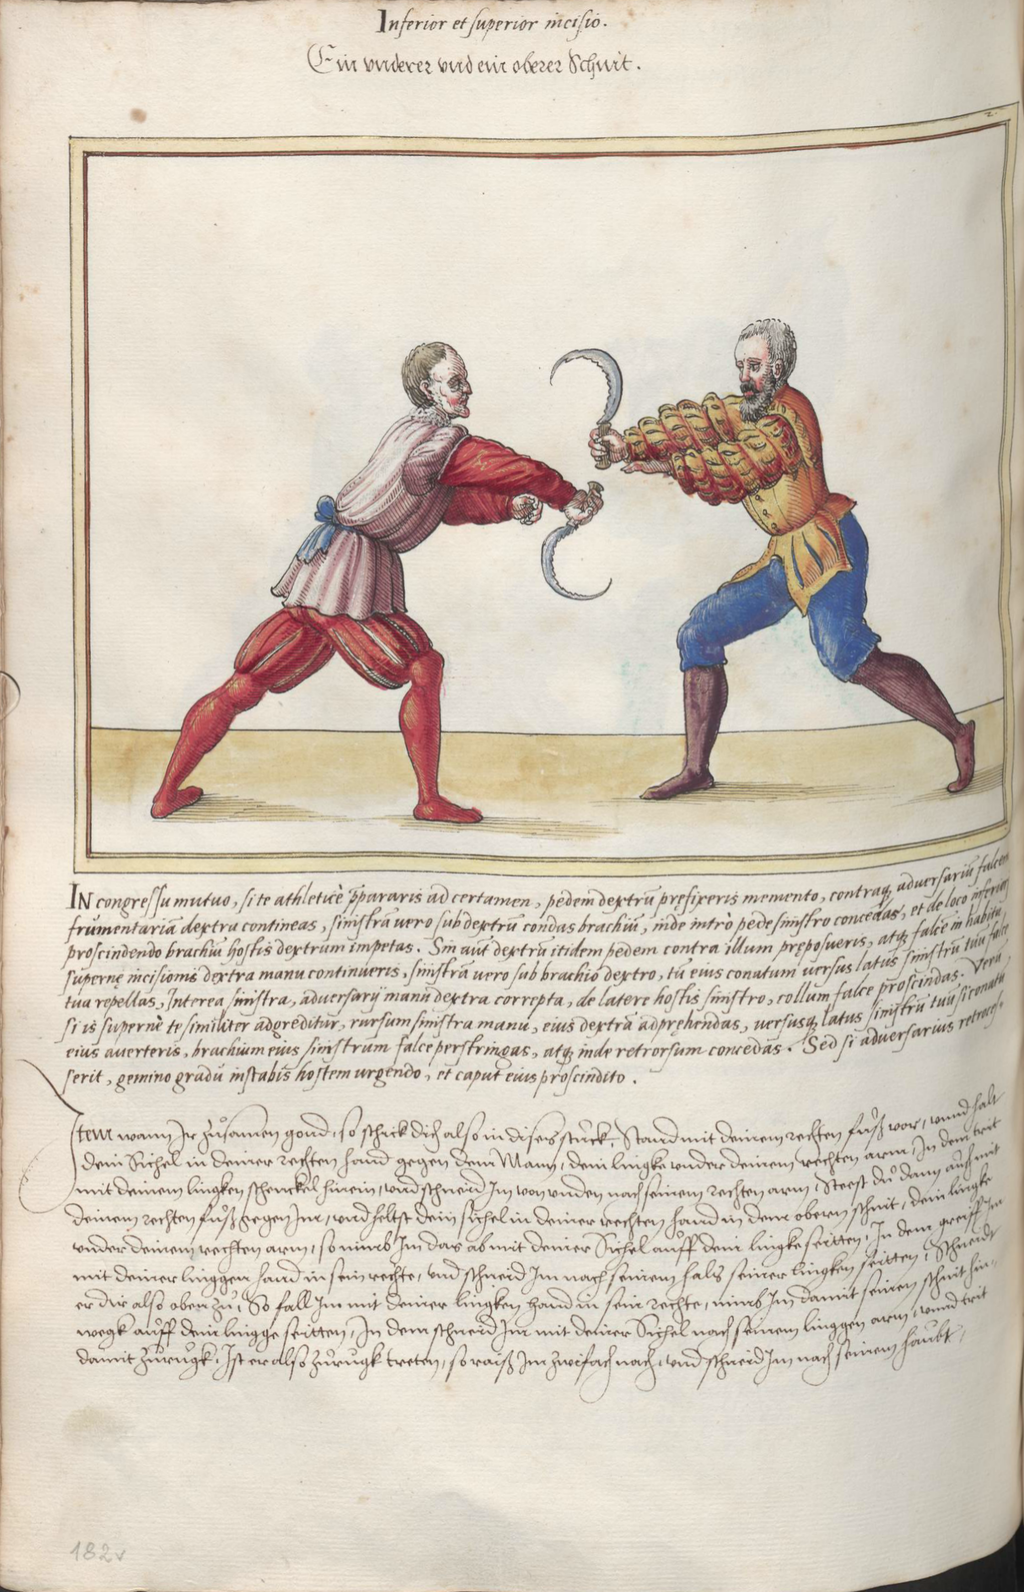 Inferior et superior incisio.
Ein vnderer vnd ein oberer Schnit.
2.
IN congressu mutuo, si te athleticè ꝓpararis ad certamen, pedem dextrũ prefixeris memento, contraq̃ adversariũ falcem
frumentariã dextra contineas, sinistrã vero sub dextrũ condas brachiũ, inde intrò pede sinistro concedas, et de loco inferiori
proscindendo brachiũ hostis dextrum impetas. Sin aũt dextrũ itidem pedem contra illum pręposueris, atq̃ falcẽ in habitu
supernę incisionis dextra manu continueris, sinistrã vero sub brachio dextro, tũ eius conatum versus latus sinistrũ tuũ falce
tua repellas, Interea sinistra, adversarij manu dextra correpta, de latere hostis sinistro, collum falce proscindas. Verũ
si is supernè te similiter adgreditur, rursum sinistra manu, eius dextrã adprehendas, versusq̃ latus sinistrũ tuũ si conatũ
eius averteris, brachium eius sinistrum falce perstringas, atq̃ inde retrorsum concedas. Sed si adversarius retroces-
serit, gemino gradu instabis hostem urgendo, et caput eius proscindito.
Item wann Ir zůsamen gond, so schick dich also in dises stuck, Stand mit deinem rechten fůß vor, vnnd halt
dein Sichel in deiner rechten hand gegen dem Mann, dein lingke vnder deinem rechten arm, In dem trit
mit deinem lingken schenckel hinein, vnd schneid Im von vnden nach seinem rechten arm, Steest du dann auch mit
deinem rechten fůß gegen Im, vnd heltst dein sichel in deiner rechten hand in dem obern schnit, dein lingke
vnder deinem rechten arm, so nimb Im das ab mit deiner Sichel auff dein lingke seitten, In dem greiff Im
mit deiner linggen hand in sein rechte, vnd schneid Im nach seinem hals seiner lingken seitten, Schneidt
er dir also oben zů, So fall Im mit deiner lingken hand in sein rechte, nimb Im damit seinen schnit hin-
wegk auff dein lingge seitten, In dem schneid Im mit deiner Sichel nach seinem linggen arm, vnnd trit
damit zůrugk, Ist er also zůrugk tretten, so raiß Im zwifach nach, vnd schneid Im nach seinem haubt,
182v